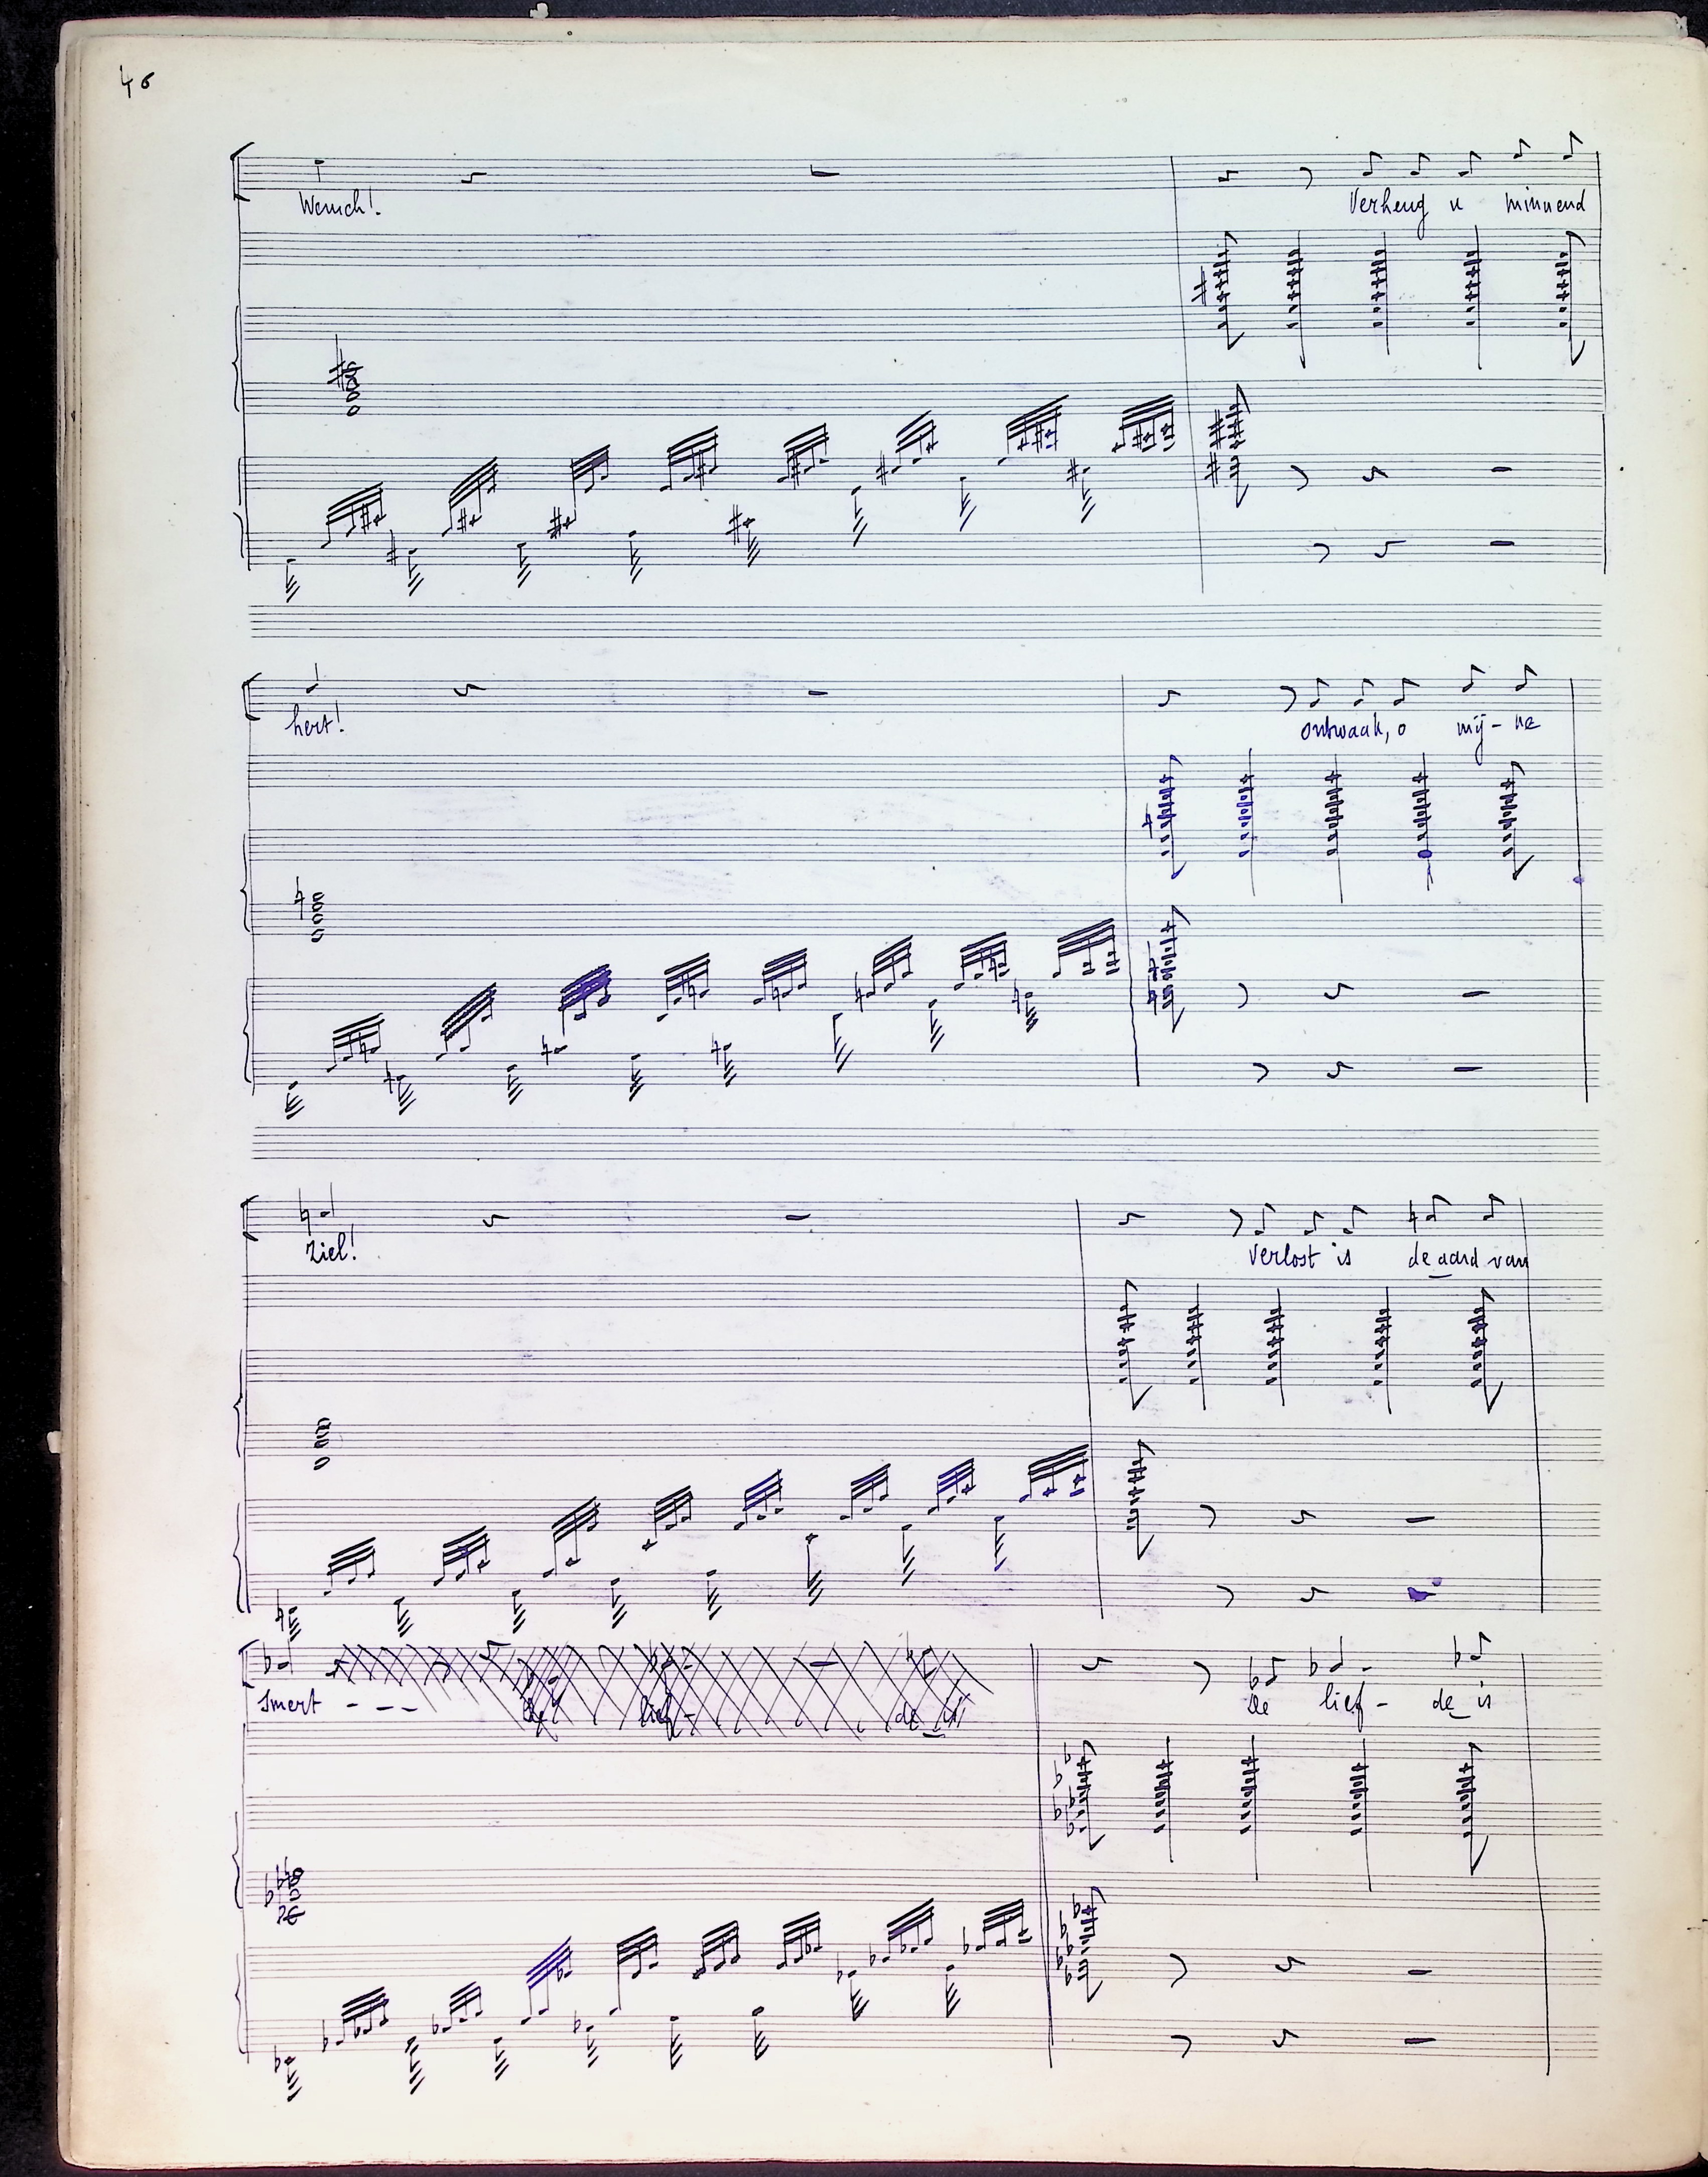 46
Verheug u minnend
hert!
ontwaak, o mij-ne
ziel!
Verlost is de aard van
smert - - -
De lief - de is
De lief - de is